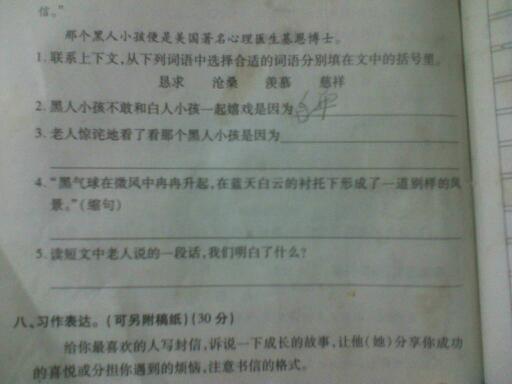 信。”
那个黑人小孩便是美国著名心理医生基恩博士。
1. 联系上下文,从下列词语中选择合适的词语分别填在文中的括号里。
恳求 沧桑 羡慕 慈祥
2. 黑人小孩不敢和白人小孩一起嬉戏是因为
3. 老人惊诧地看了看那个黑人小孩是因为
4. “黑气球在微风中冉冉升起,在蓝天白云的衬托下形成了一道别样的风
景。”(缩句)
5. 读短文中老人说的一段话,我们明白了什么?
八、习作表达。(可另附稿纸)(30分)
给你最喜欢的人写封信,诉说一下成长的故事,让他(她)分享你成功
的喜悦或分担你遇到的烦恼,注意书信的格式。